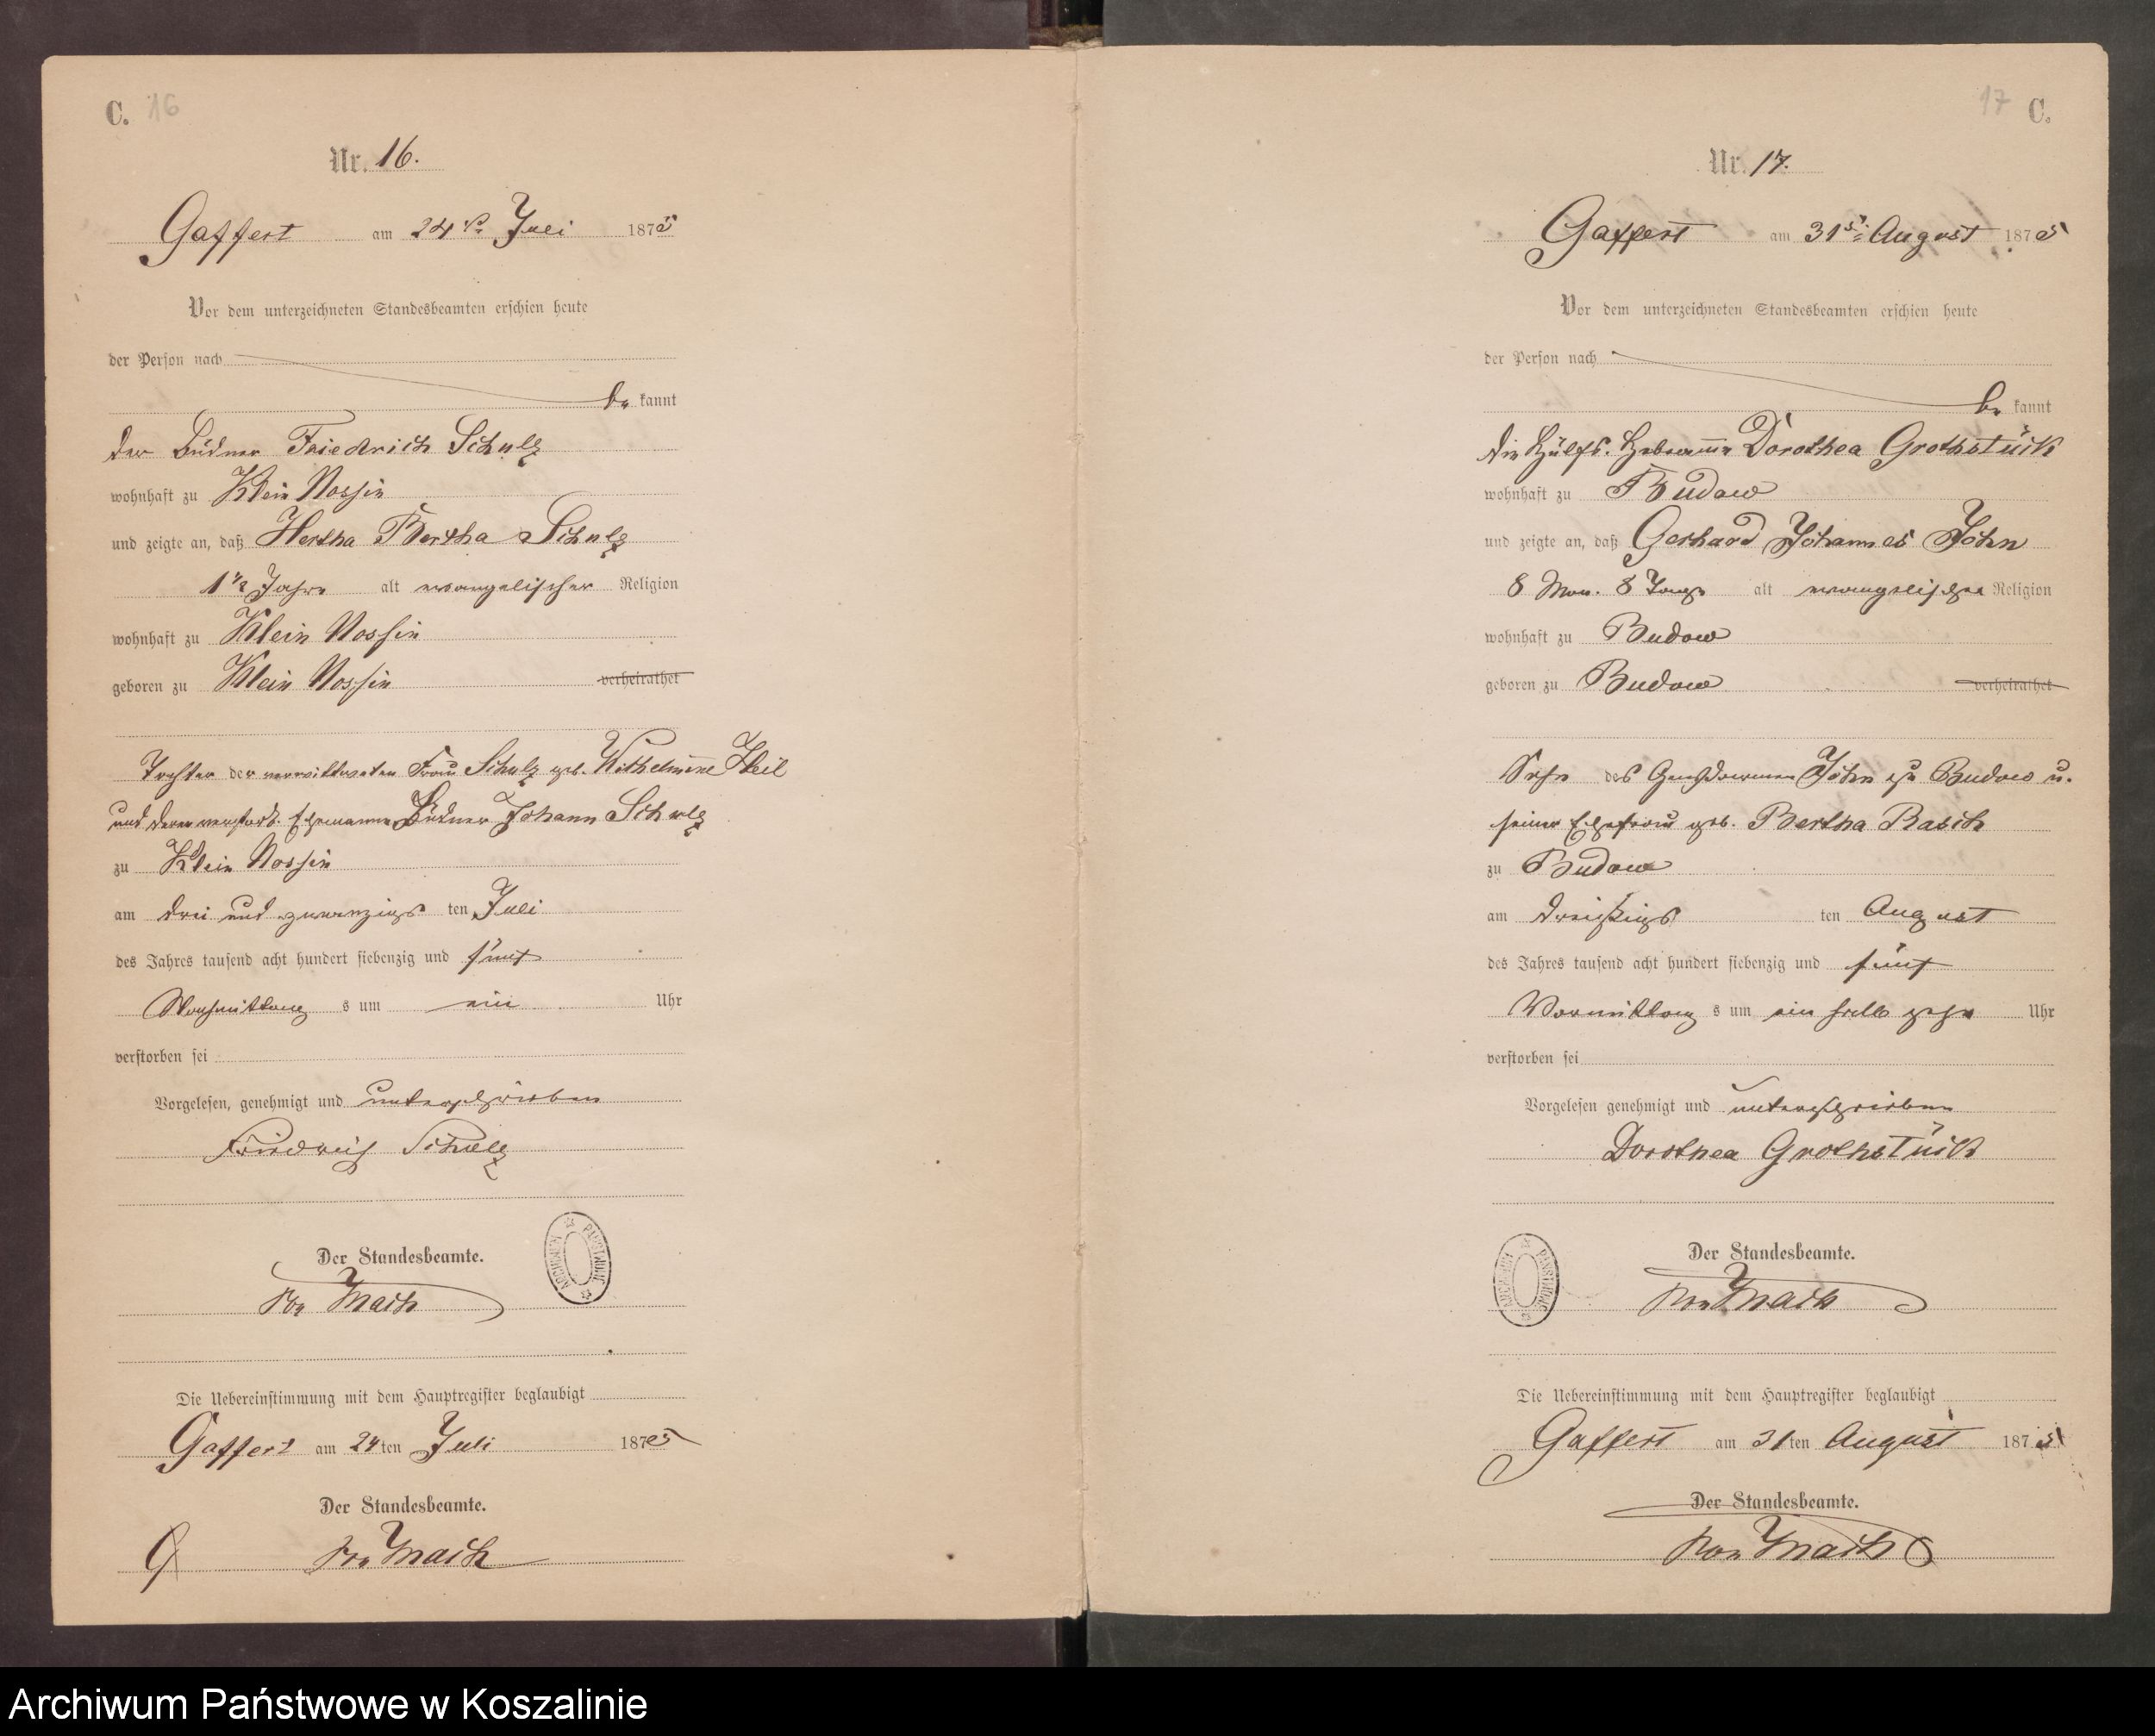 C. 16
Nr. 16.
Gaffert am 24ten Juli 1875
Vor dem unterzeichneten Standesbeamten erschien heute
der Person nach
be kannt
der Büdner Friedrich Schulz
wohnhaft zu Klein Nossin
und zeigte an, daß Hertha Bertha Schulz
1 1/2 Jahr alt evangelischer Religion
wohnhaft zu Klein Nossin
geboren zu Klein Nossin verheirathet
Tochter der verwittweten Frau Schulz geb. Wilhelmine Heil
und deren verstorb. Ehemann Büdner Johann Schulz
zu Klein Nossin
am drei und zwanzigs ten Juli
des Jahres tausend acht hundert siebenzig und fünf
Nachmittag s um ein Uhr
verstorben sei
Vorgelesen, genehmigt und unterschrieben
Friedrich Schulz
Der Standesbeamte.
von Mach
ARCHIWUM PAŃSTWOWE
Die Uebereinstimmung mit dem Hauptregister beglaubigt
Gaffert am 24ten Juli 1875
Der Standesbeamte.
von Mach
17 C.
Nr. 17.
Gaffert am 31st August 1875
Vor dem unterzeichneten Standesbeamten erschien heute
der Person nach
be kannt
die Hülfs. Hebamme Dorothea Grothstück
wohnhaft zu Budow
und zeigte an, daß Gerhard Johannes John
8 Mon. 8 Tage alt evangelischer Religion
wohnhaft zu Budow
geboren zu Budow verheirathet
Sohn des Gensdarmen John zu Budow u.
seiner Ehefrau geb. Bertha Rasch
zu Budow
am dreißigs ten August
des Jahres tausend acht hundert siebenzig und fünf
Vormittag s um ein halb zehn Uhr
verstorben sei
Vorgelesen genehmigt und unterschrieben
Dorothea Grothstück
Der Standesbeamte.
von Mach
ARCHIWUM PAŃSTWOWE
Die Uebereinstimmung mit dem Hauptregister beglaubigt
Gaffert am 31ten August 1875
Der Standesbeamte.
von Mach
Archiwum Państwowe w Koszalinie